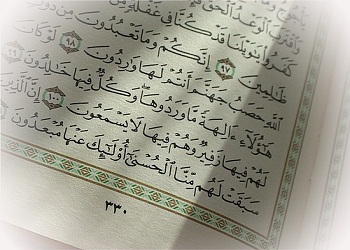 وَٱقْتَرَبَ ٱلْوَعْدُ ٱلْحَقُّ
كَفَرُوا۟ يَٰوَيْلَنَا قَدْ كُنَّا فِى غَفْلَةٍ
ظَٰلِمِينَ ٩٧ إِنَّكُمْ وَمَا تَعْبُدُونَ
ٱللَّهِ حَصَبُ جَهَنَّمَ أَنتُمْ لَهَا وَٰرِدُونَ ٩٨ لَوْ كَانَ
هَٰٓؤُلَآءِ ءَالِهَةً مَّا وَرَدُوهَا ۖ وَكُلٌّ فِيهَا خَٰلِدُونَ ٩٩
لَهُمْ فِيهَا زَفِيرٌ وَهُمْ فِيهَا لَا يَسْمَعُونَ ١٠٠ إِنَّ
سَبَقَتْ لَهُم مِّنَّا ٱلْحُسْنَىٰٓ أُو۟لَٰٓئِكَ عَنْهَا مُبْعَدُونَ
٣٣٠